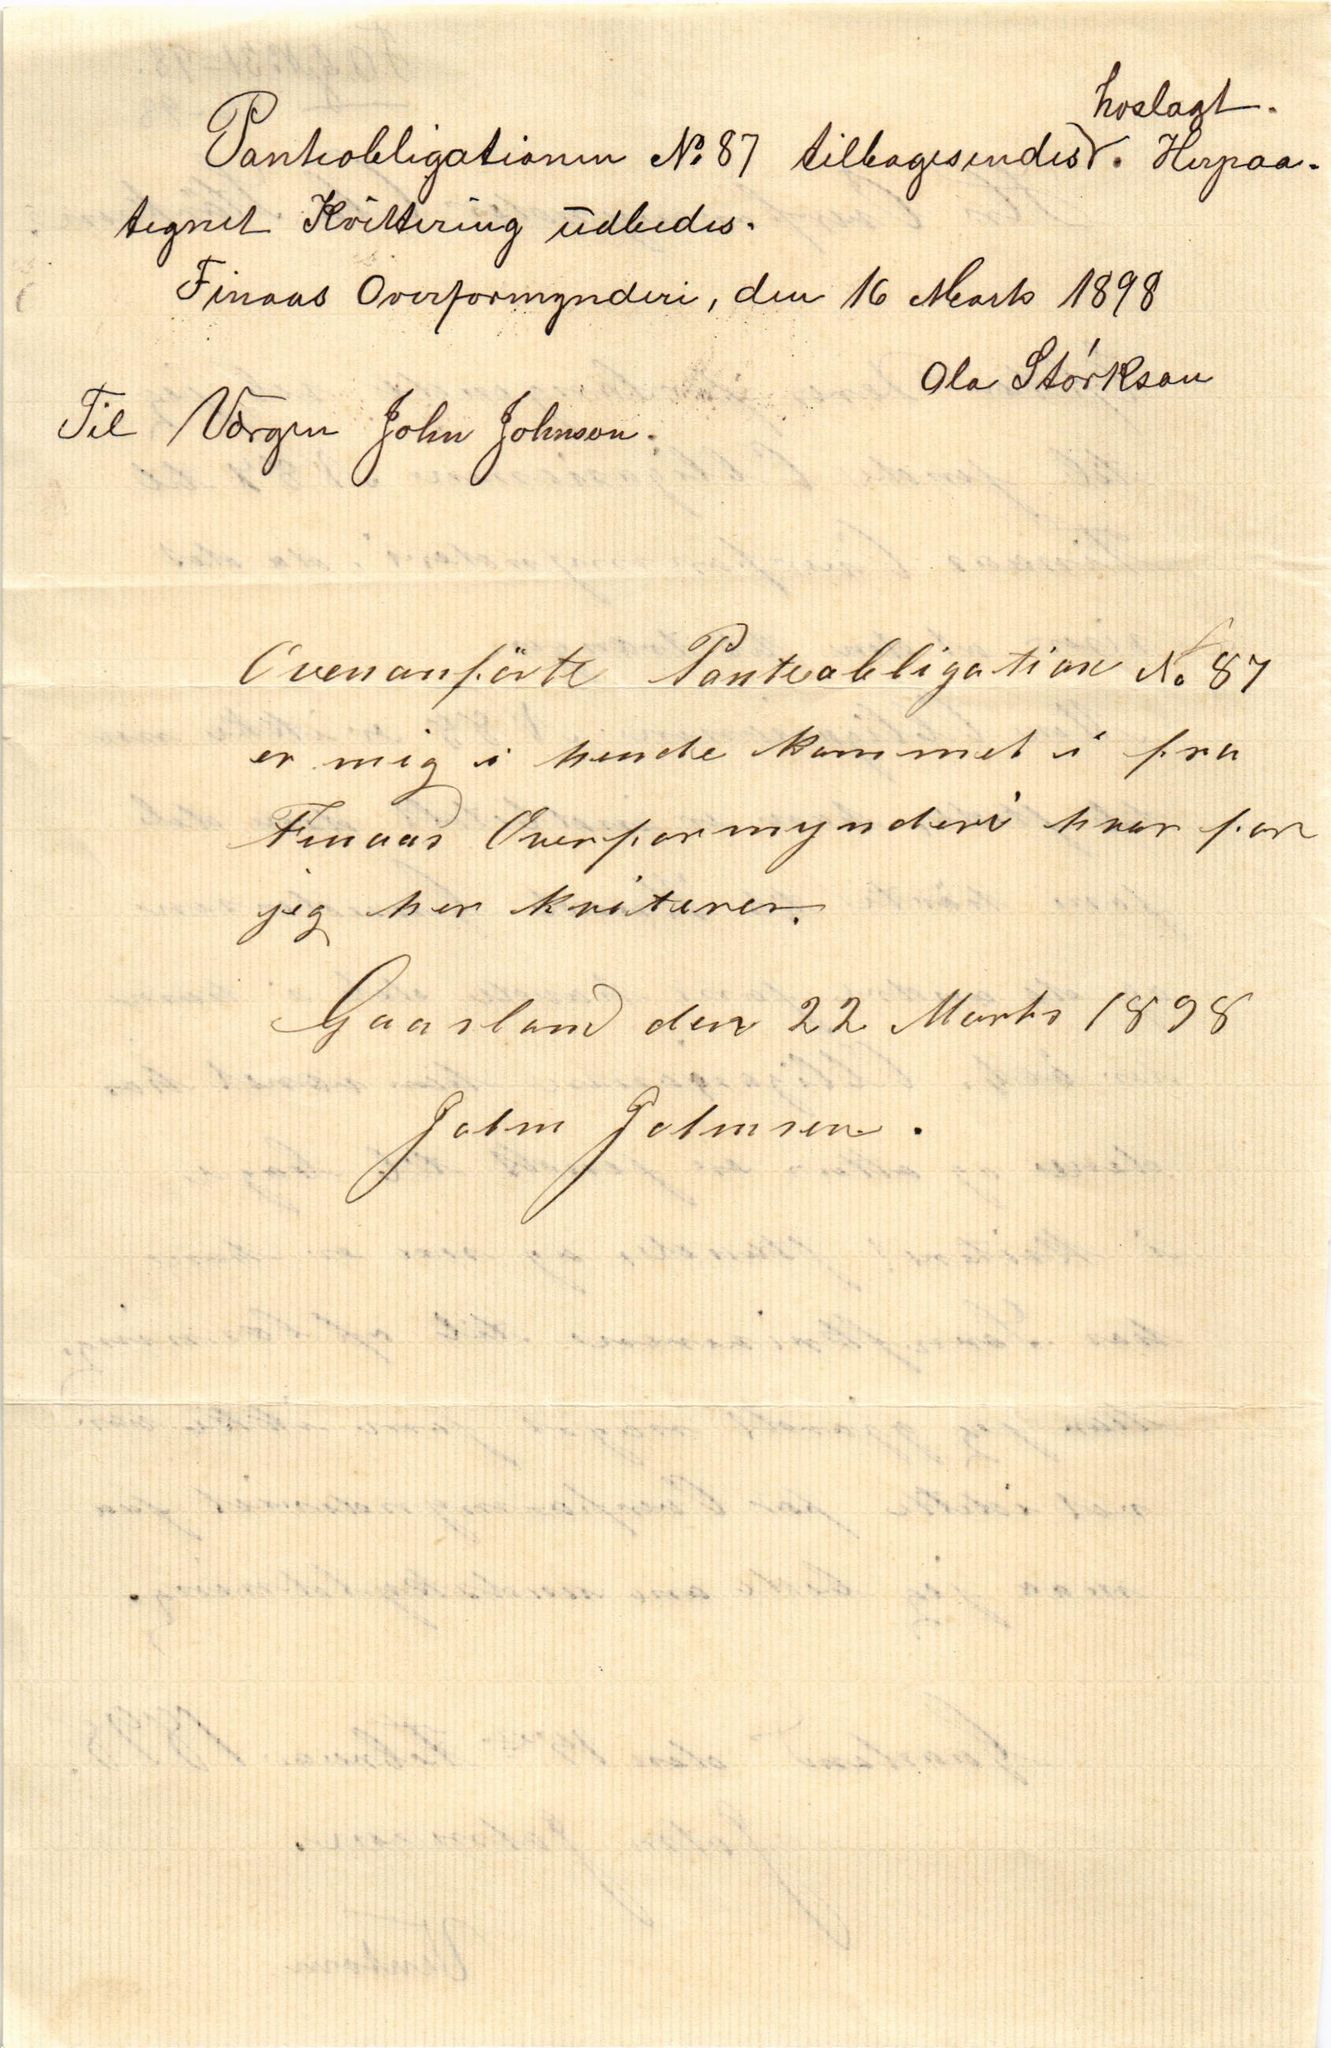 hoslagt.
Panteobligationen No 87 tilbagesendes. Herpaa-
tegnet Kvittering udbedes.
Finaas Overformynderi, den 16 Marts 1898
Ola Størkson
Til Værgen John Johnson.
Ovenanförte Panteobligation No 87
er mig i hende kommet i fra
Finaas Overformynderi hvor for
jeg her kviterer.
Gaasland den 22 Marts 1898
John Johnsen.